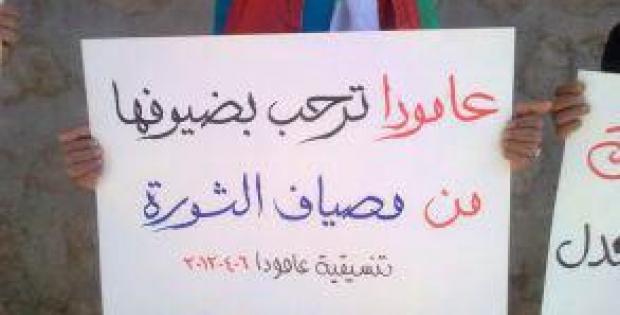 عامودا ترحب بضيوفها
من مصياف الثورة
تنسيقية عامودا ٢٠١٢-٤-٦
عدل